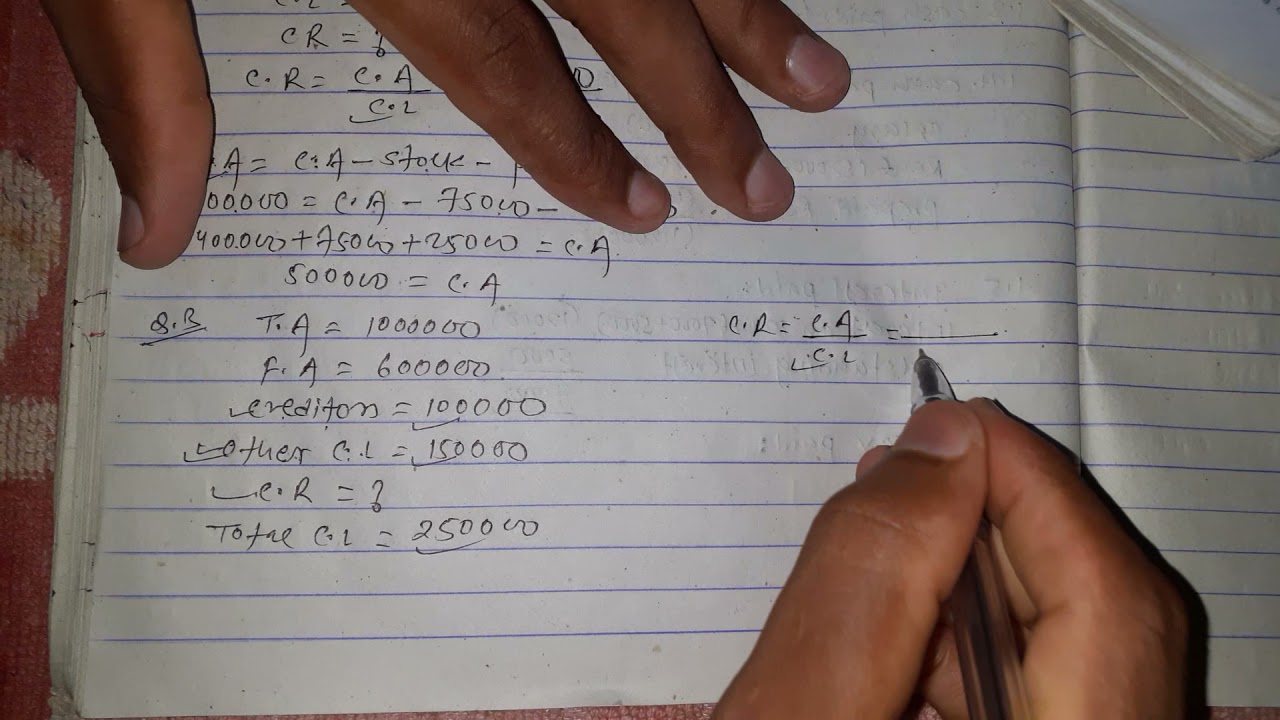 CR = ?
C.R = C.A
C.L
A = C.A - Stock -
00000 = C.A - 75000 -
400000 + 75000 + 25000 = C.A.
500000 = C.A
Q.3 T.A = 1000000 C.R = C.A =
C.L
F.A = 600000
creditors = 100000
Other C.L = 150000
C.R = ?
Total C.L = 250000